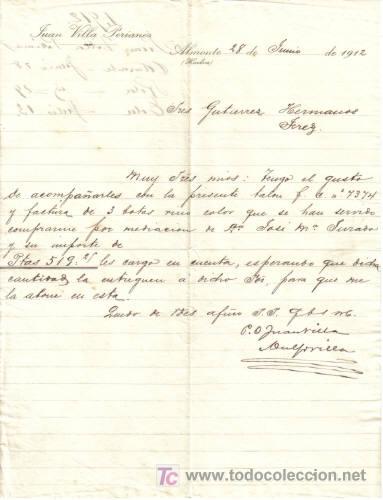 Juan Villa Perianes
Almonte 28 de Junio de 1912
(Huelva)
Sres Gutierrez Hermanos
Jerez
Muy Sres mios: Tengo el gusto
de acompañarles con la presente talon f. c. nº 7374
y factura de 3 botas vino color que se han servido
comprarme por mediacion de Dn José Mª Jurado
y su importe de
Ptas 519. les cargo en cuenta, esperando que dicha
cantidad la entreguen a dicho Sr. para que me
la abone en esta.
Quedo de Vdes afmo S. S. q b s m.
P. O Juan Villa
TC www.todocoleccion.net